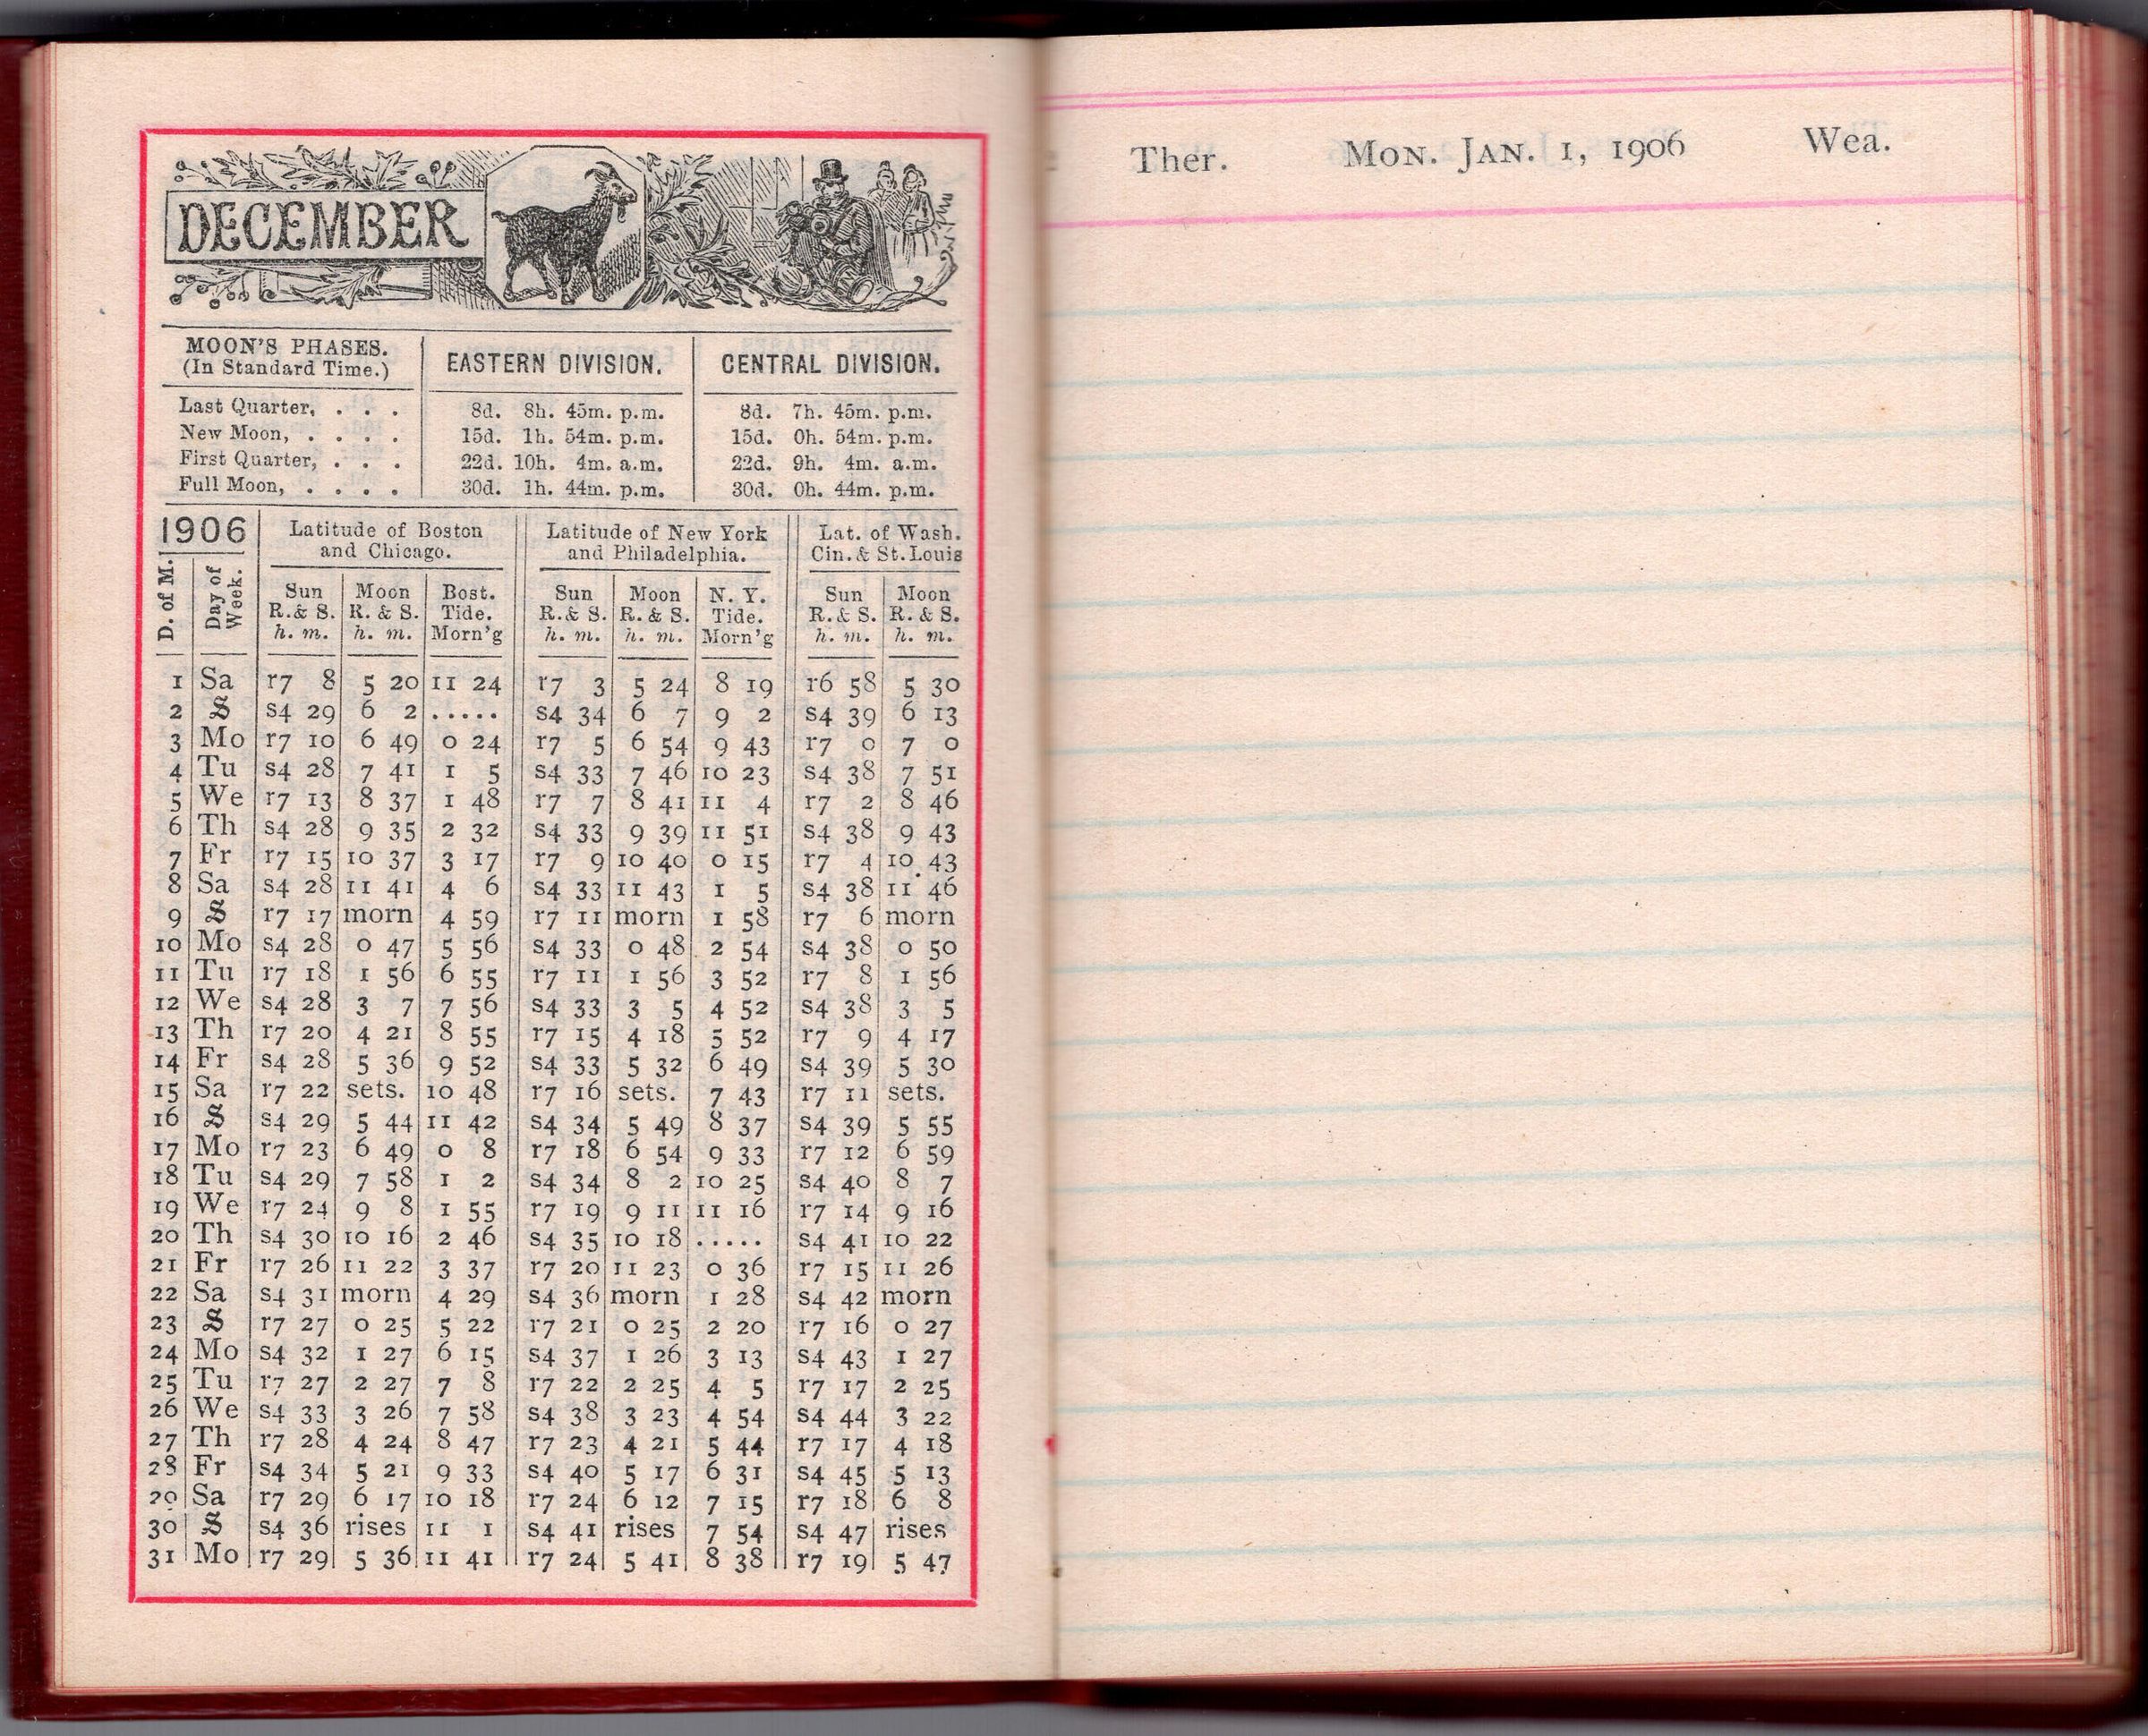 DECEMBER
MOON'S PHASES. (In Standard Time.) EASTERN DIVISION. CENTRAL DIVISION.
Last Quarter, . . . 8d. 8h. 45m. p.m. 8d. 7h. 45m. p.m.
New Moon, . . . . 15d. 1h. 54m. p.m. 15d. 0h. 54m. p.m.
First Quarter, . . . 22d. 10h. 4m. a.m. 22d. 9h. 4m. a.m.
Full Moon, . . . . 30d. 1h. 44m. p.m. 30d. 0h. 44m. p.m.
1906 Latitude of Boston and Chicago. Latitude of New York and Philadelphia. Lat. of Wash. Cin. & St. Louis
D. of M. Day of Week. Sun R. & S. h. m. Moon R. & S. h. m. Bost. Tide. Morn'g Sun R. & S. h. m. Moon R. & S. h. m. N. Y. Tide. Morn'g Sun R. & S. h. m. Moon R. & S. h. m.
1 Sa r7 8 5 20 11 24 r7 3 5 24 8 19 r6 58 5 30
2 S s4 29 6 2 ..... s4 34 6 7 9 2 s4 39 6 13
3 Mo r7 10 6 49 0 24 r7 5 6 54 9 43 r7 0 7 0
4 Tu s4 28 7 41 1 5 s4 33 7 46 10 23 s4 38 7 51
5 We r7 13 8 37 1 48 r7 7 8 41 11 4 r7 2 8 46
6 Th s4 28 9 35 2 32 s4 33 9 39 11 51 s4 38 9 43
7 Fr r7 15 10 37 3 17 r7 9 10 40 0 15 r7 4 10 43
8 Sa s4 28 11 41 4 6 s4 33 11 43 1 5 s4 38 11 46
9 S r7 17 morn 4 59 r7 11 morn 1 58 r7 6 morn
10 Mo s4 28 0 47 5 56 s4 33 0 48 2 54 s4 38 0 50
11 Tu r7 18 1 56 6 55 r7 11 1 56 3 52 r7 8 1 56
12 We s4 28 3 7 7 56 s4 33 3 5 4 52 s4 38 3 5
13 Th r7 20 4 21 8 55 r7 15 4 18 5 52 r7 9 4 17
14 Fr s4 28 5 36 9 52 s4 33 5 32 6 49 s4 39 5 30
15 Sa r7 22 sets. 10 48 r7 16 sets. 7 43 r7 11 sets.
16 S s4 29 5 44 11 42 s4 34 5 49 8 37 s4 39 5 55
17 Mo r7 23 6 49 0 8 r7 18 6 54 9 33 r7 12 6 59
18 Tu s4 29 7 58 1 2 s4 34 8 2 10 25 s4 40 8 7
19 We r7 24 9 8 1 55 r7 19 9 11 11 16 r7 14 9 16
20 Th s4 30 10 16 2 46 s4 35 10 18 ..... s4 41 10 22
21 Fr r7 26 11 22 3 37 r7 20 11 23 0 36 r7 15 11 26
22 Sa s4 31 morn 4 29 s4 36 morn 1 28 s4 42 morn
23 S r7 27 0 25 5 22 r7 21 0 25 2 20 r7 16 0 27
24 Mo s4 32 1 27 6 15 s4 37 1 26 3 13 s4 43 1 27
25 Tu r7 27 2 27 7 8 r7 22 2 25 4 5 r7 17 2 25
26 We s4 33 3 26 7 58 s4 38 3 23 4 54 s4 44 3 22
27 Th r7 28 4 24 8 47 r7 23 4 21 5 44 r7 17 4 18
28 Fr s4 34 5 21 9 33 s4 40 5 17 6 31 s4 45 5 13
29 Sa r7 29 6 17 10 18 r7 24 6 12 7 15 r7 18 6 8
30 S s4 36 rises 11 1 s4 41 rises 7 54 s4 47 rises
31 Mo r7 29 5 36 11 41 r7 24 5 41 8 38 r7 19 5 47
Ther. MON. JAN. 1, 1906 Wea.